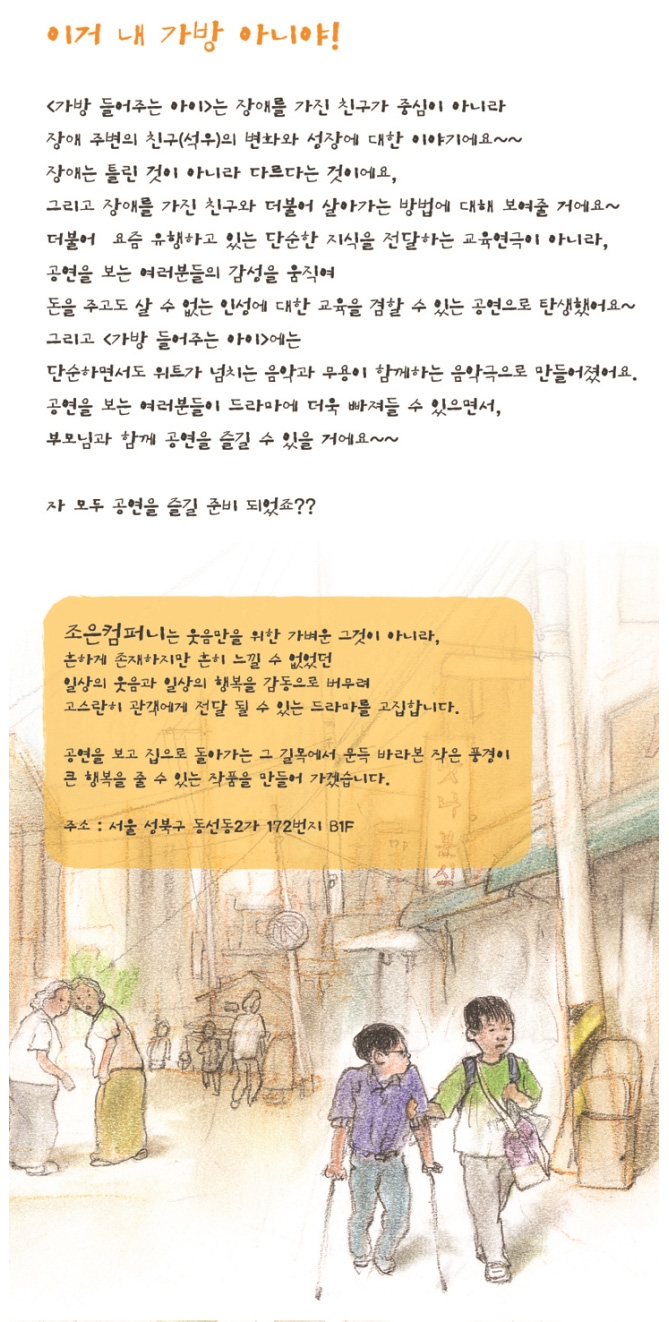 이거 내 가방 아니야!
<가방 들어주는 아이>는 장애를 가진 친구가 중심이 아니라
장애 주변의 친구(석우)의 변화와 성장에 대한 이야기에요~~
장애는 틀린 것이 아니라 다르다는 것이에요,
그리고 장애를 가진 친구와 더불어 살아가는 방법에 대해 보여줄 거에요~
더불어 요즘 유행하고 있는 단순한 지식을 전달하는 교육연극이 아니라,
공연을 보는 여러분들의 감성을 움직여
돈을 주고도 살 수 없는 인성에 대한 교육을 겸할 수 있는 공연으로 탄생했어요~
그리고 <가방 들어주는 아이>에는
단순하면서도 위트가 넘치는 음악과 무용이 함께하는 음악극으로 만들어졌어요.
공연을 보는 여러분들이 드라마에 더욱 빠져들 수 있으면서,
부모님과 함께 공연을 즐길 수 있을 거에요~~
자 모두 공연을 즐길 준비 되었죠??
조은컴퍼니는 웃음만을 위한 가벼운 그것이 아니라,
흔하게 존재하지만 흔히 느낄 수 없었던
일상의 웃음과 일상의 행복을 감동으로 버무려
고스란히 관객에게 전달 될 수 있는 드라마를 고집합니다.
공연을 보고 집으로 돌아가는 그 길목에서 문득 바라본 작은 풍경이
큰 행복을 줄 수 있는 작품을 만들어 가겠습니다.
주소 : 서울 성북구 동선동2가 172번지 B1F